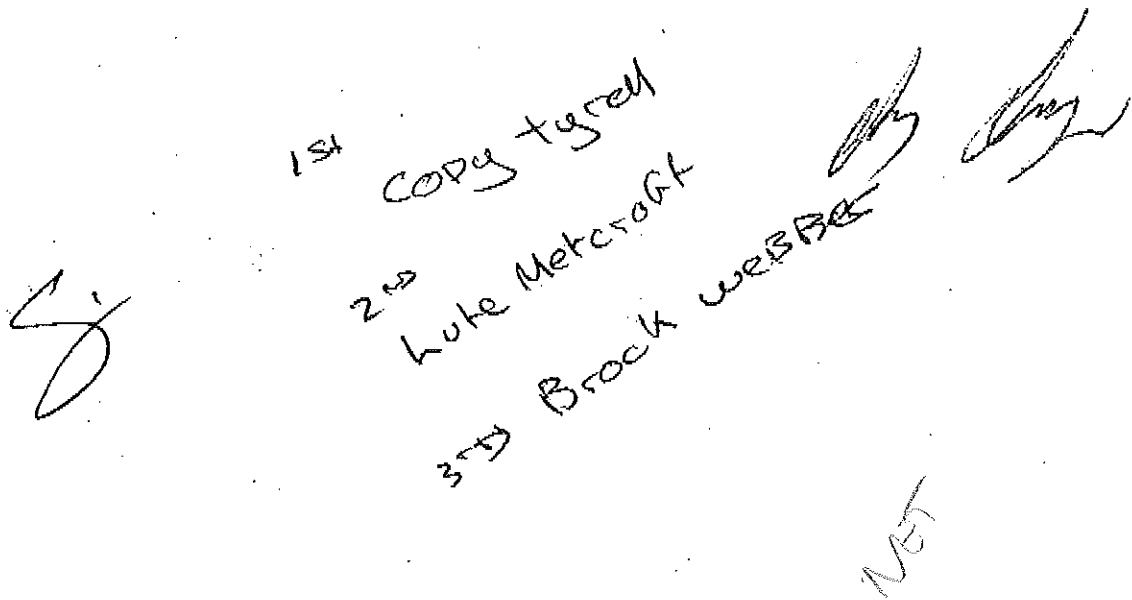 1st
Copy tyrell
2nd
Luke Metcroft
3rd Brock weBBer
NET